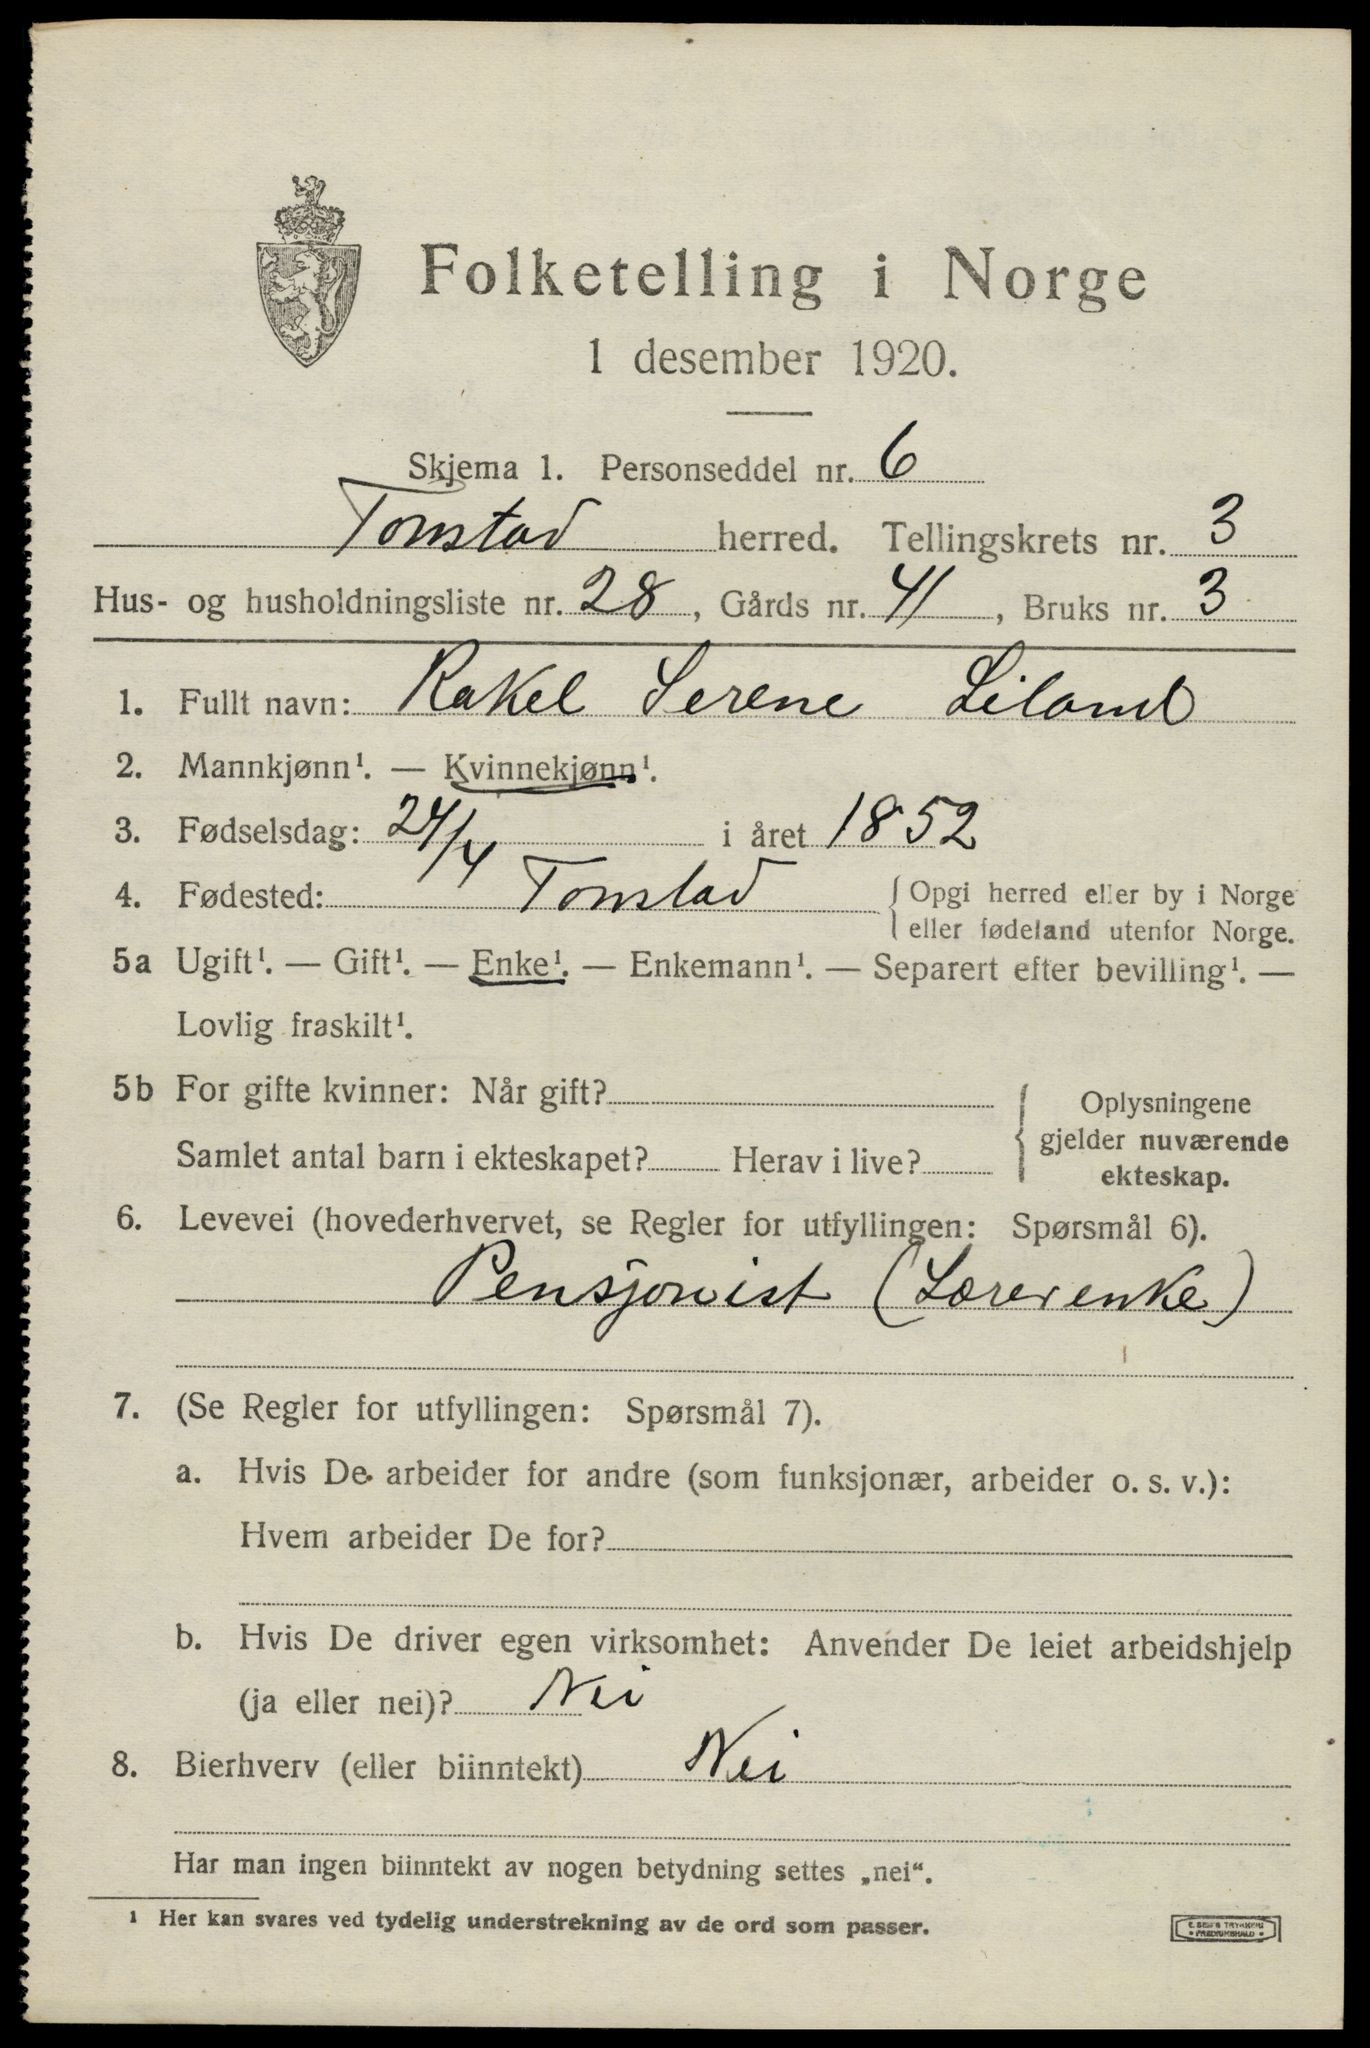 Folketelling i Norge
1 desember 1920.
Skjema 1. Personseddel nr. 6
Tonstad herred. Tellingskrets nr. 3
Hus- og husholdningsliste nr. 28, Gårds nr. 41, Bruks nr. 3
1. Fullt navn: Rakel Serene Liland
2. Mannkjønn¹. — Kvinnekjønn¹.
3. Fødselsdag: 24/4 i året 1852
4. Fødested: Tonstad { Opgi herred eller by i Norge
eller fødeland utenfor Norge.
5a Ugift¹. — Gift¹. — Enke¹. — Enkemann¹. — Separert efter bevilling¹. —
Lovlig fraskilt¹.
5b For gifte kvinner: Når gift?
Samlet antal barn i ekteskapet? Herav i live?
Oplysningene
gjelder nuværende
ekteskap.
6. Levevei (hovederhvervet, se Regler for utfyllingen: Spørsmål 6).
Pensjonist (Lærerenke)
7. (Se Regler for utfyllingen: Spørsmål 7).
a. Hvis De arbeider for andre (som funksjonær, arbeider o. s. v.):
Hvem arbeider De for?
b. Hvis De driver egen virksomhet: Anvender De leiet arbeidshjelp
(ja eller nei)? Nei
8. Bierhverv (eller biinntekt) Nei
Har man ingen biinntekt av nogen betydning settes „nei“.
¹ Her kan svares ved tydelig understrekning av de ord som passer.
E. SEM'S TRYKKERI
• FREDRIKSHALD •